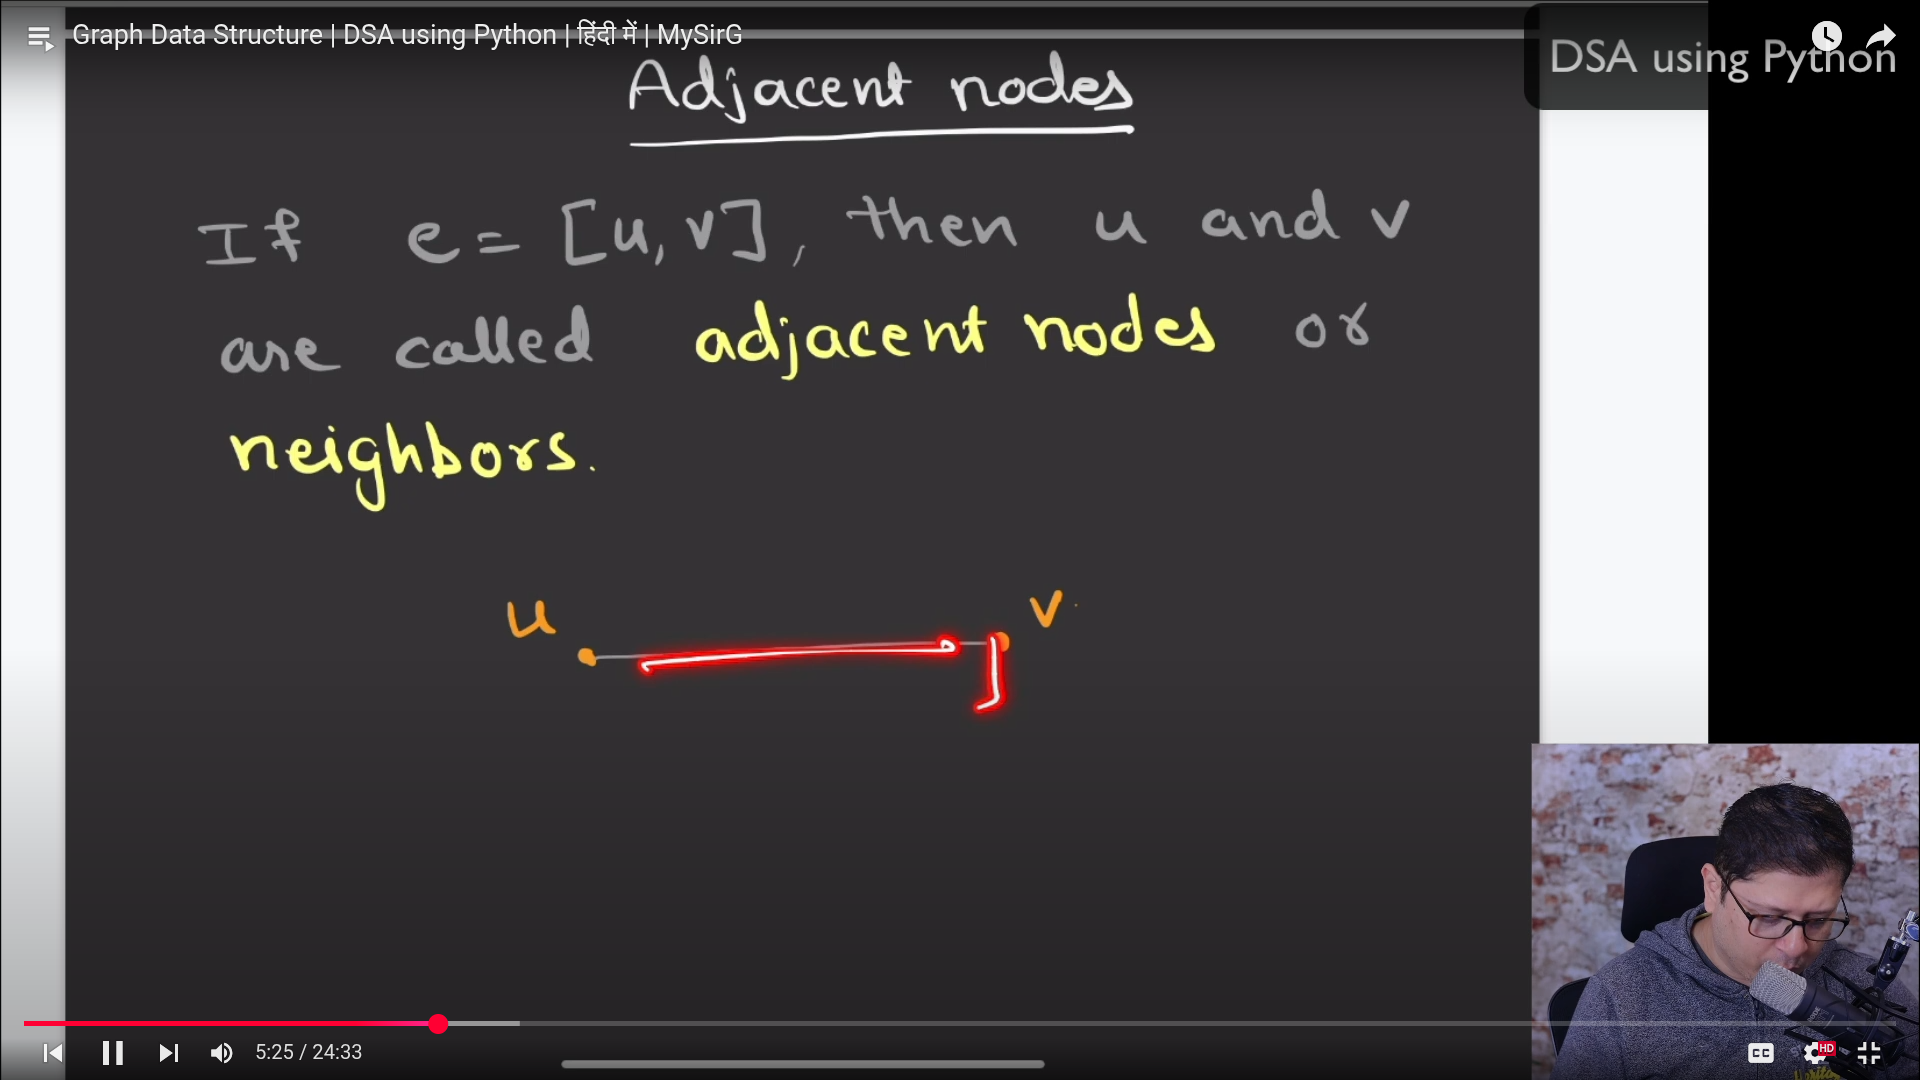 Graph Data Structure | DSA using Python | हिंदी में | MySirG
DSA using Python
Adjacent nodes
If e = [u, v], then u and v
are called adjacent nodes or
neighbors.
u v
5:25 / 24:33
CC HD